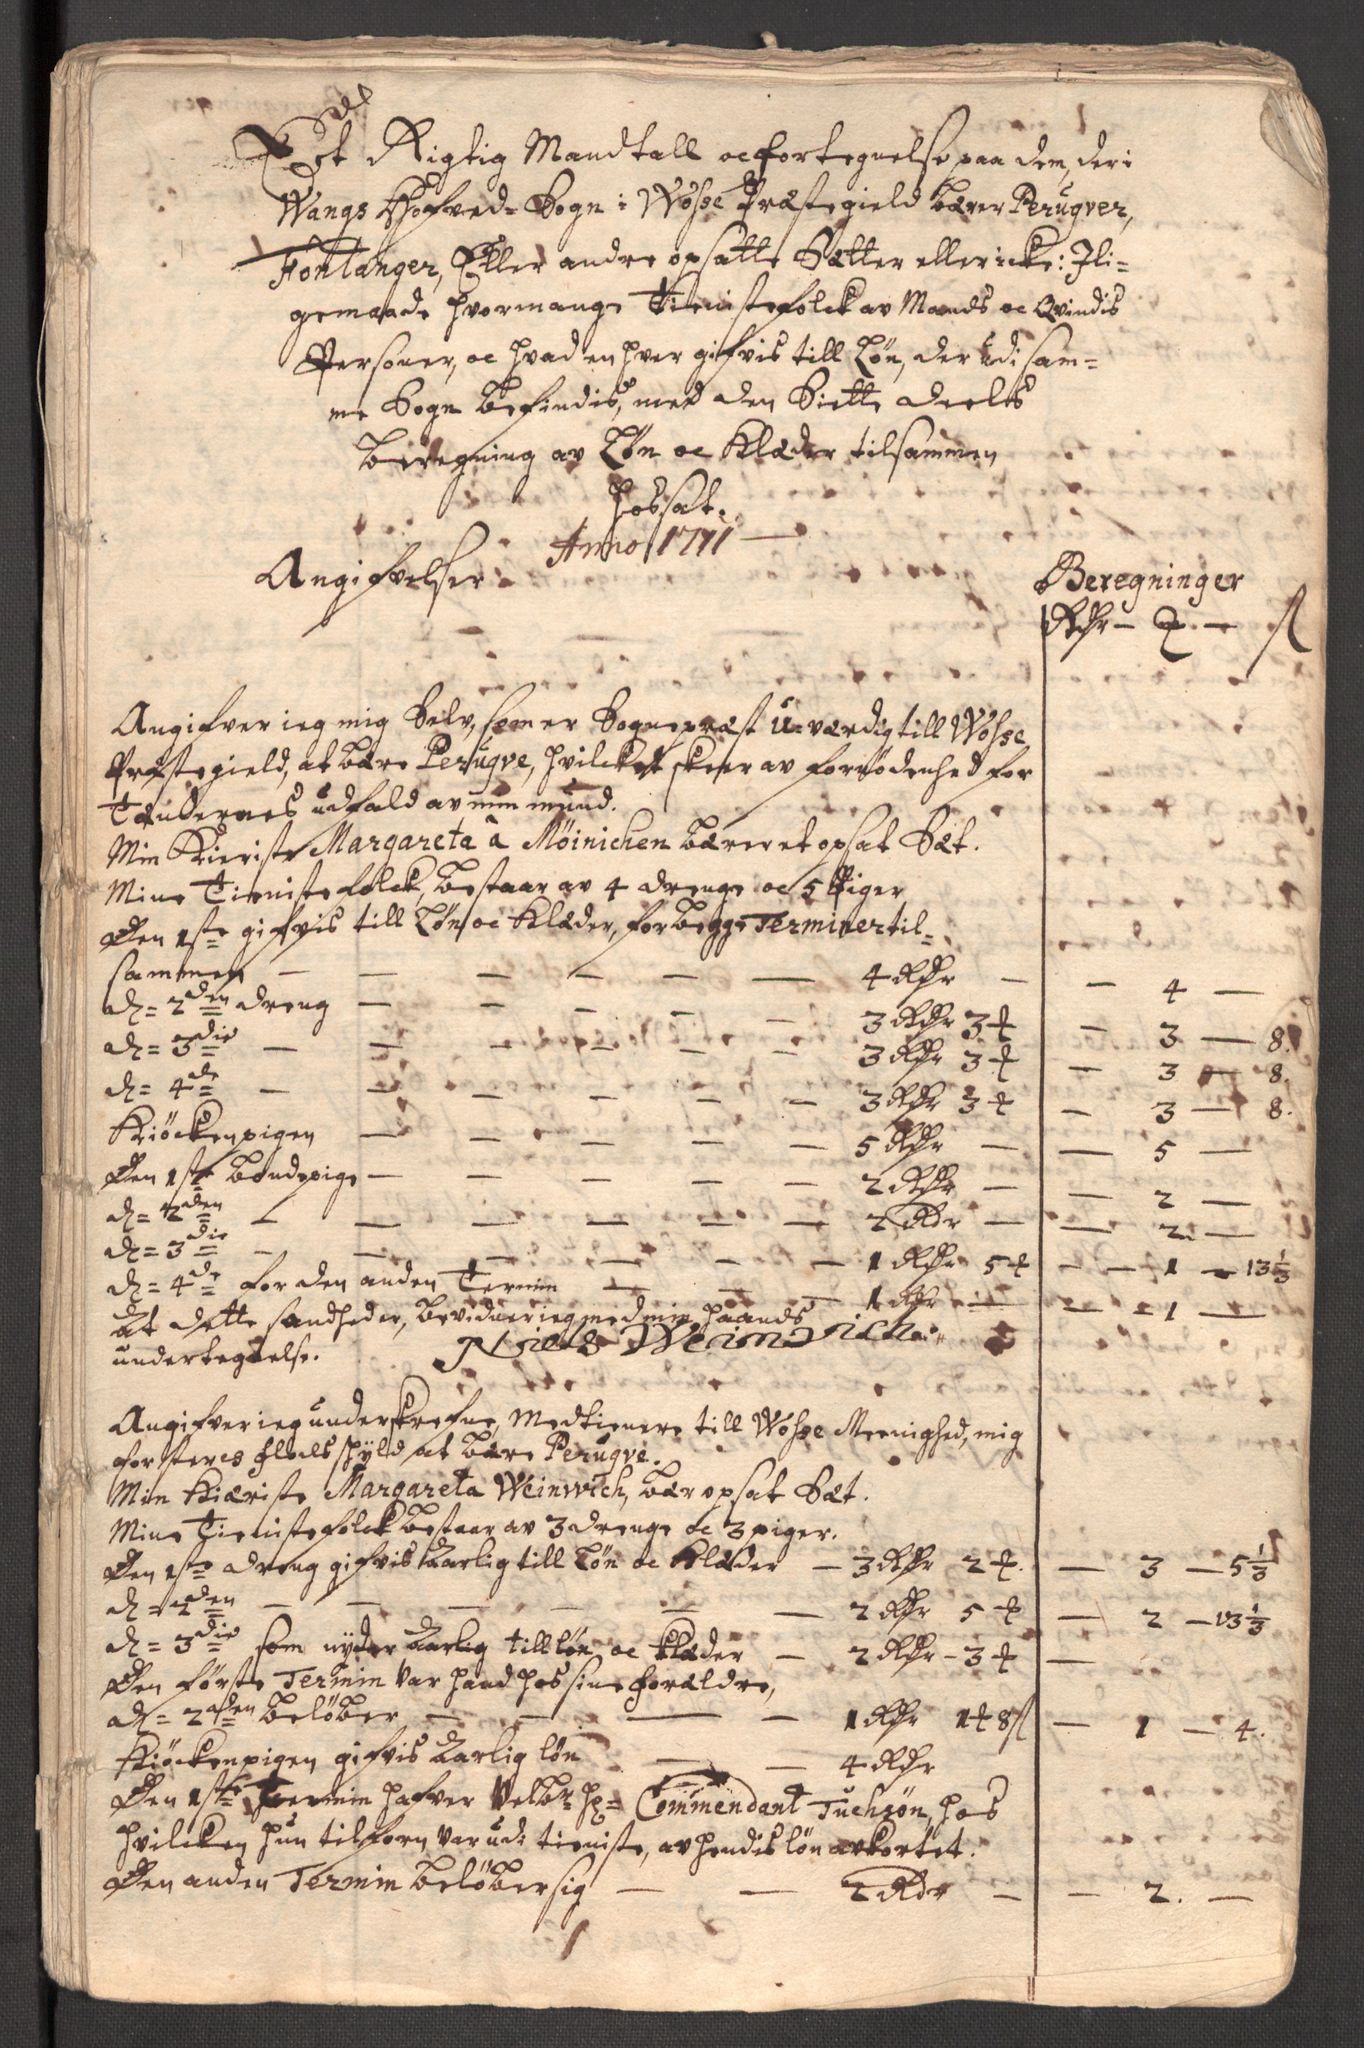 Et Rigtig Mandtall oc fortegnelse paa dem, der i
Wangs Hofved-Sogn i Wosse Præstegield bærer Perugver,
Fontanger, Eller andre opsatte Sætter eller icke: Ili-
gemaade hvormange Tienistefolck av Mands oc Qvindis
Personer, oc hvad en hver gifvis till Løn, der udi sam-
me Sogn befindis, med den Siette deels
beregning av Løn oc Klæder tilsammen
hossat.
Anno 1711
Angifvelser
Beregninger
Rdr — ß
Angifver ieg mig Selv, som er Sognepræst u-værdig till Wosse
Præstegield, at bære Perugve, hvilcket skeer av fornødenhed for
Tændernes udfald av min mund.
Min Kieriste Margareta â Møinichen bærer et opsat Sæt.
Mine Tieniste folck bestaar av 4 drenge oc 5 Piger
Den 1ste gifvis till Løn oc Klæder, for begge Terminer til-
sammen — 4 Rdr — 4 —
d= 2den dreng — 3 Rdr 3 — 3 — 8.
d= 3die — 3 Rdr 3 — 3 — 8.
d= 4de — 3 Rdr 3 — 3 — 8.
Kiøckenpigen — 5 Rdr — 5 —
Den 1ste bondepige — 2 Rdr — 2 —
d= 2den — 2 Rdr — 2. —
d= 3die — 1 Rdr 5 — 1 — 13 1/3
d= 4de for den anden Termin — 1 Rdr — 1 —
At dette sandhed er, bevidner ieg med min haands
undertegnelse. Niels Weinwich
Angifver ieg underskrefne, Medtienere till Wosse Meenighed, mig
for skyld at bære Perugve.
Min Kiæriste Margareta Weinwich, bær opsat Sæt.
Mine Tienistefolck bestaar av 3 drenge oc 3 piger.
Den 1ste dreng gifvis aarlig till Løn oc Klæder — 3 Rdr 2 — 3 — 5 1/3
d= 2den — 2 Rdr 5 — 2 — 13 1/3
d= 3die som nyder aarlig till løn oc klæder — 2 Rdr — 3 —
Den første Termin var hand hos sine forældre,
d= 2den beløber — 1 Rdr 1 8 ß — 1 — 4.
Kiøckenpigen gifvis aarlig løn — 4 Rdr
Den 1ste Termin hafver Velbr: Hr= Commendant Tuchsøn, hos
hvilcken hun tilforn var udi tieniste, av hendis løn avkortet.
Den anden Termin beløber sig — 2 Rdr — 2. —